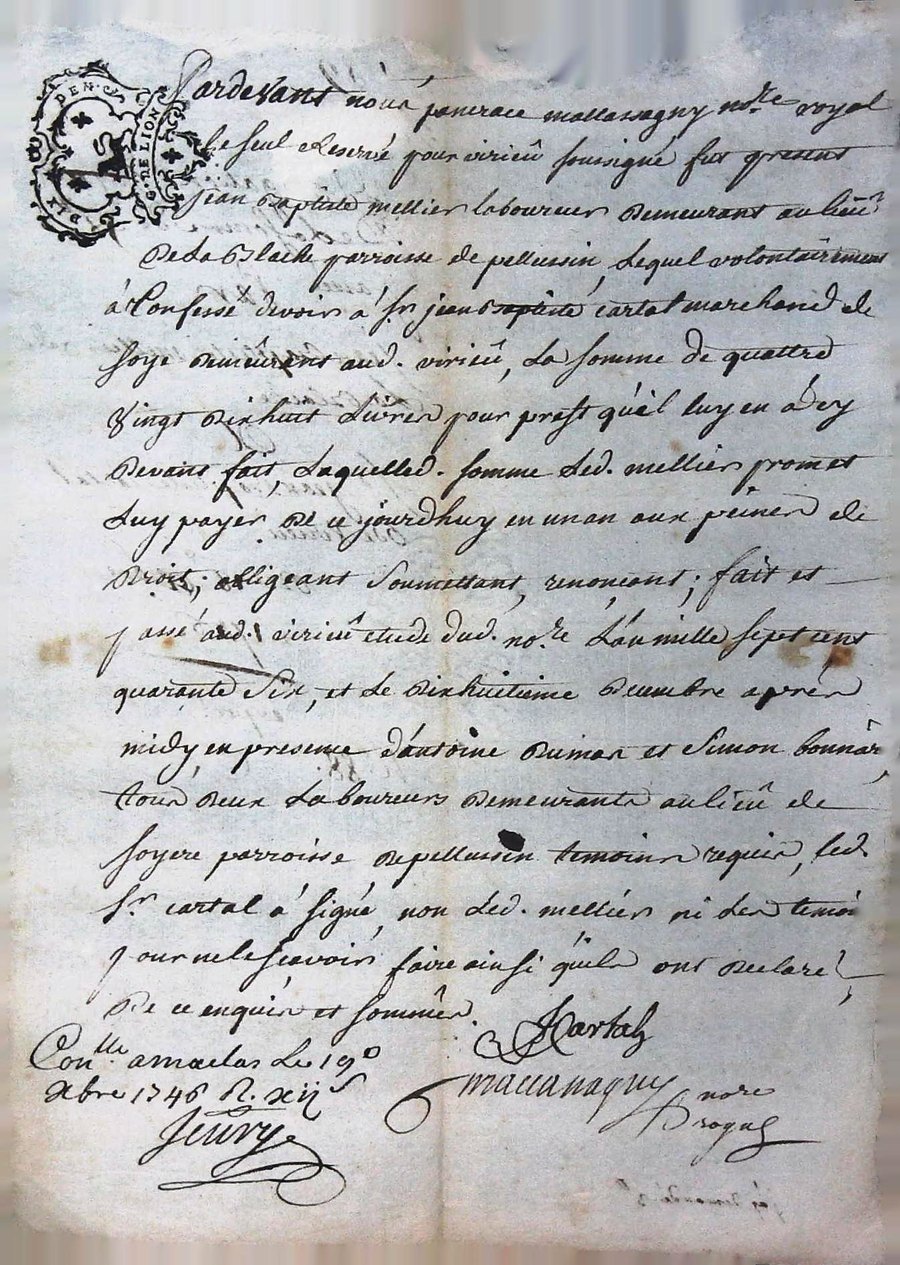 DIX DEN. G. DE LION
Pardevant nous pancrace mattassagny no.re royal
Le seul Reservé pour virieû soussigné fut present
jean Baptiste mellier laboureur Demeurant au lieu
De La Blache parroisse de pellussin, Lequel volontairement
à Confessé devoir à S.r jean Baptiste cartal marchand de
soye demeûrant aud. virieû, La somme de quattre
Vingt Dixhuit Livres pour prest qu'il luy en à cy
Devant fait, Laquelled. somme Led. mellier promet
Luy payer De ce jourdhuy en un an aux peines de
Droit, obligeant Soumettant, renoncant; fait et
passé aud. virieû etude dud. no.re L'an mille sept cent
quarante Six, et Le Dixhuitieme Decembre après
midy en presence d'antoine Dumas et Simon bonnar
tous Deux Laboureurs Demeurants au lieû de
soyere parroisse de pellussin temoins requis, Led.
S.r cartal à signé, non Led. mellier ni Les temoi
pour ne le scavoir faire ainsi qu'ils ont Declaré
De ce enquis et sommés.
Con.lle a maclas Le 19e
Xbre 1746 R. xij s
Cartal
nore
Jeury